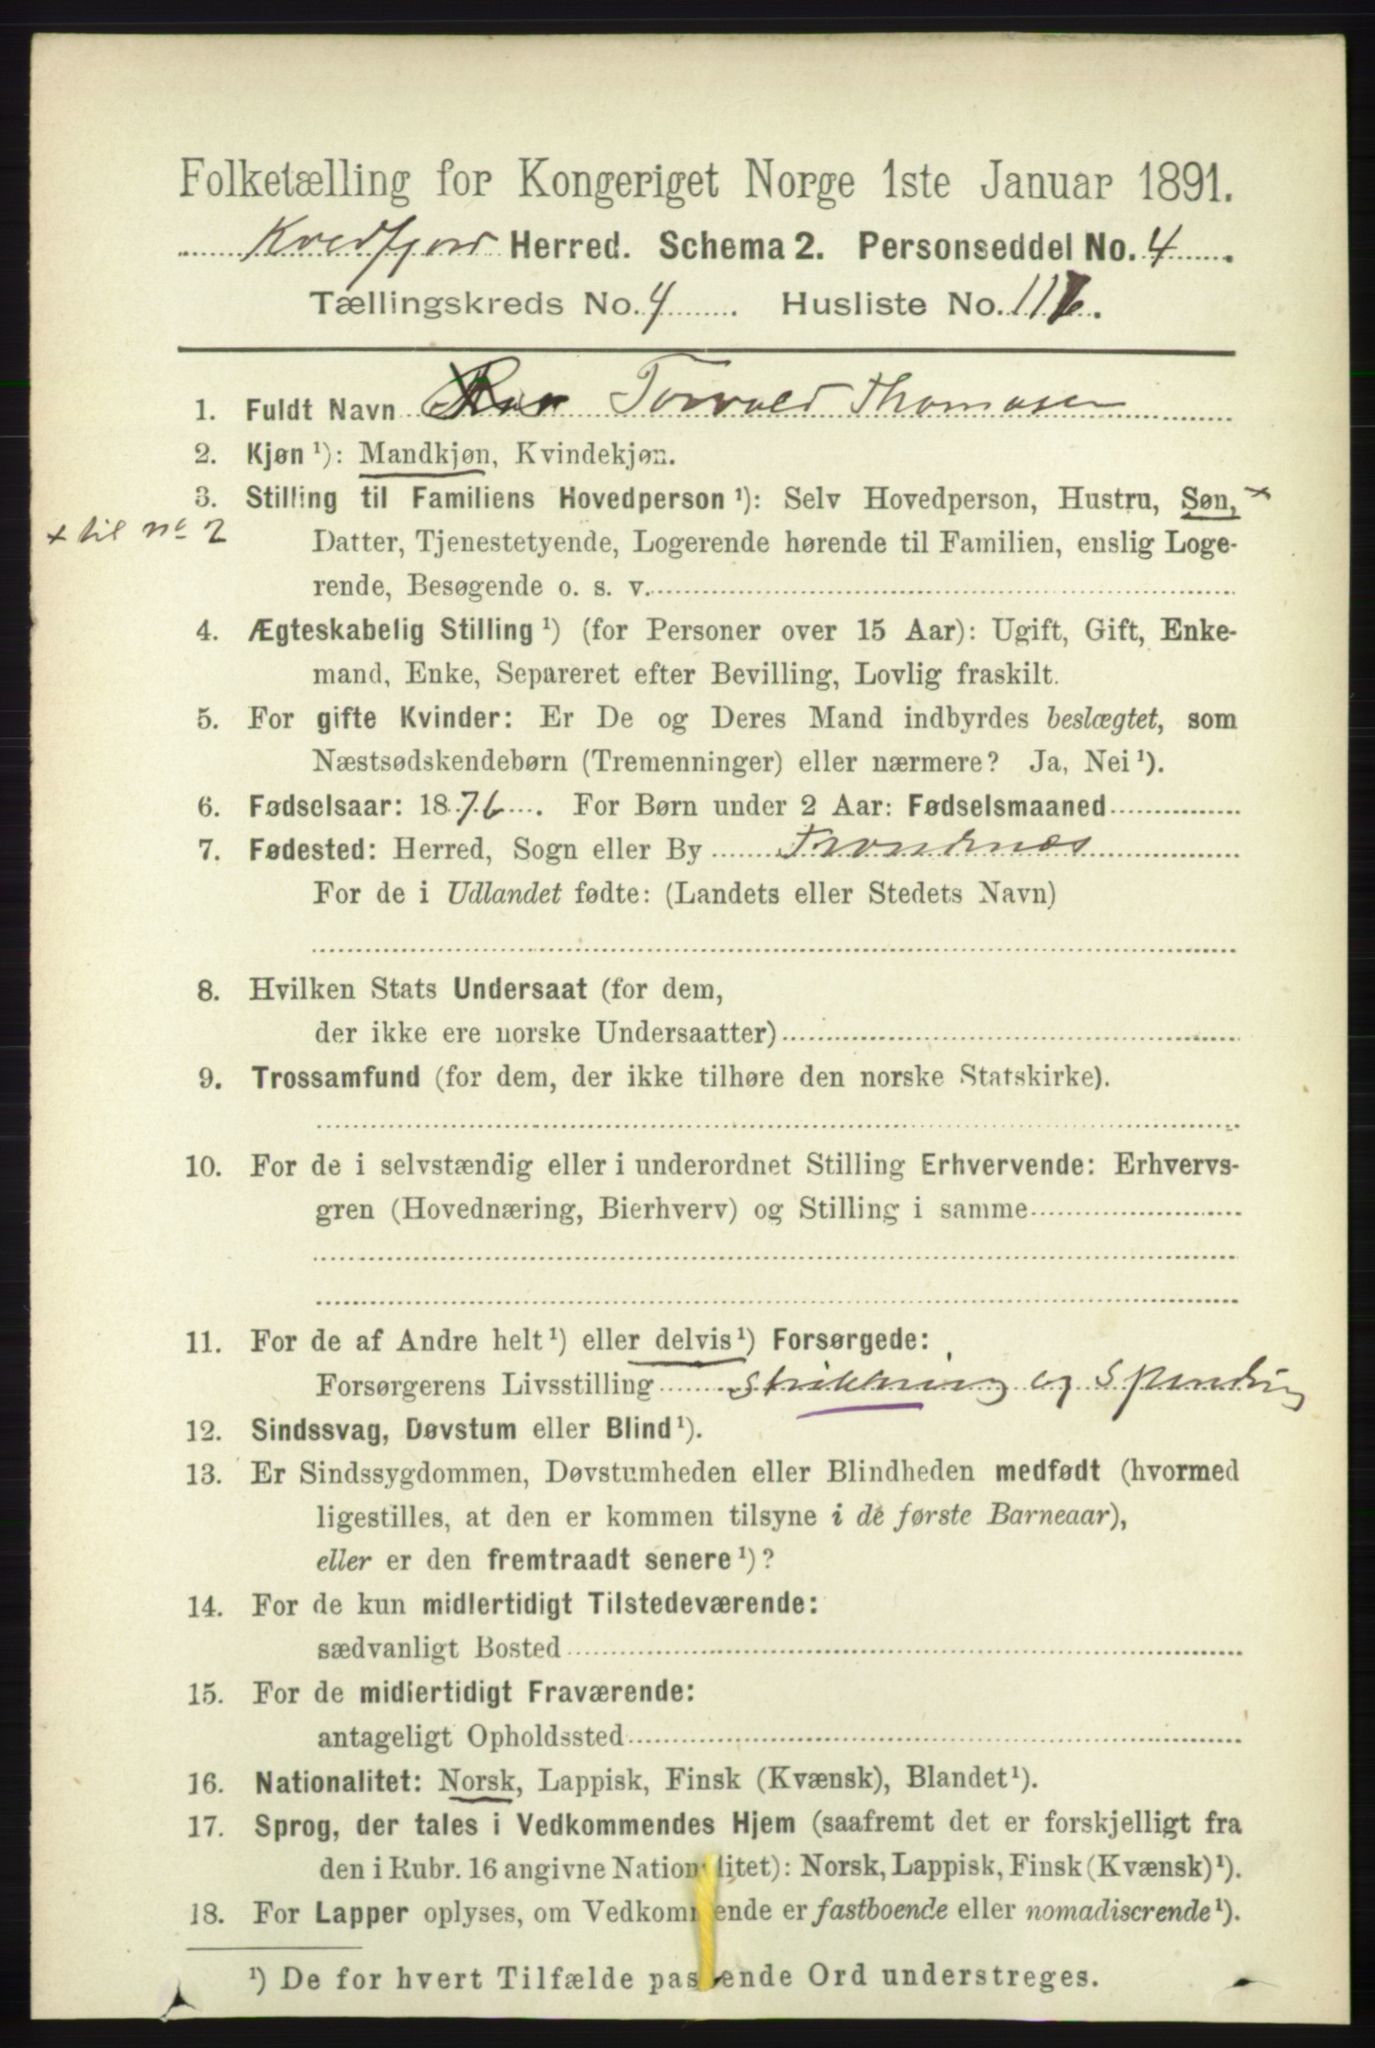 Folketælling for Kongeriget Norge 1ste Januar 1891.
Kvedfjord Herred. Schema 2. Personseddel No. 4
Tællingskreds No. 4 Husliste No. 116.
1. Fuldt Navn Torvald Thomasen
2. Kjøn ¹): Mandkjøn, Kvindekjøn.
3. Stilling til Familiens Hovedperson ¹): Selv Hovedperson, Hustru, Søn, ×
× til No 2
Datter, Tjenestetyende, Logerende hørende til Familien, enslig Loge-
rende, Besøgende o. s. v.
4. Ægteskabelig Stilling ¹) (for Personer over 15 Aar): Ugift, Gift, Enke-
mand, Enke, Separeret efter Bevilling, Lovlig fraskilt.
5. For gifte Kvinder: Er De og Deres Mand indbyrdes beslægtet, som
Næstsødskendebørn (Tremenninger) eller nærmere? Ja, Nei ¹).
6. Fødselsaar: 1876. For Børn under 2 Aar: Fødselsmaaned
7. Fødested: Herred, Sogn eller By Trondenæs
For de i Udlandet fødte: (Landets eller Stedets Navn)
8. Hvilken Stats Undersaat (for dem,
der ikke ere norske Undersaatter)
9. Trossamfund (for dem, der ikke tilhøre den norske Statskirke).
10. For de i selvstændig eller i underordnet Stilling Erhvervende: Erhvervs-
gren (Hovednæring, Bierhverv) og Stilling i samme
11. For de af Andre helt ¹) eller delvis ¹) Forsørgede:
Forsørgerens Livsstilling Strikkning og Spinding
12. Sindssvag, Døvstum eller Blind ¹).
13. Er Sindssygdommen, Døvstumheden eller Blindheden medfødt (hvormed
ligestilles, at den er kommen tilsyne i de første Barneaar),
eller er den fremtraadt senere ¹)?
14. For de kun midlertidigt Tilstedeværende:
sædvanligt Bosted
15. For de midlertidigt Fraværende:
antageligt Opholdssted
16. Nationalitet: Norsk, Lappisk, Finsk (Kvænsk), Blandet ¹).
17. Sprog, der tales i Vedkommendes Hjem (saafremt det er forskjelligt fra
den i Rubr. 16 angivne Nationalitet): Norsk, Lappisk, Finsk (Kvænsk) ¹).
18. For Lapper oplyses, om Vedkommende er fastboende eller nomadiserende ¹).
¹) De for hvert Tilfælde passende Ord understreges.